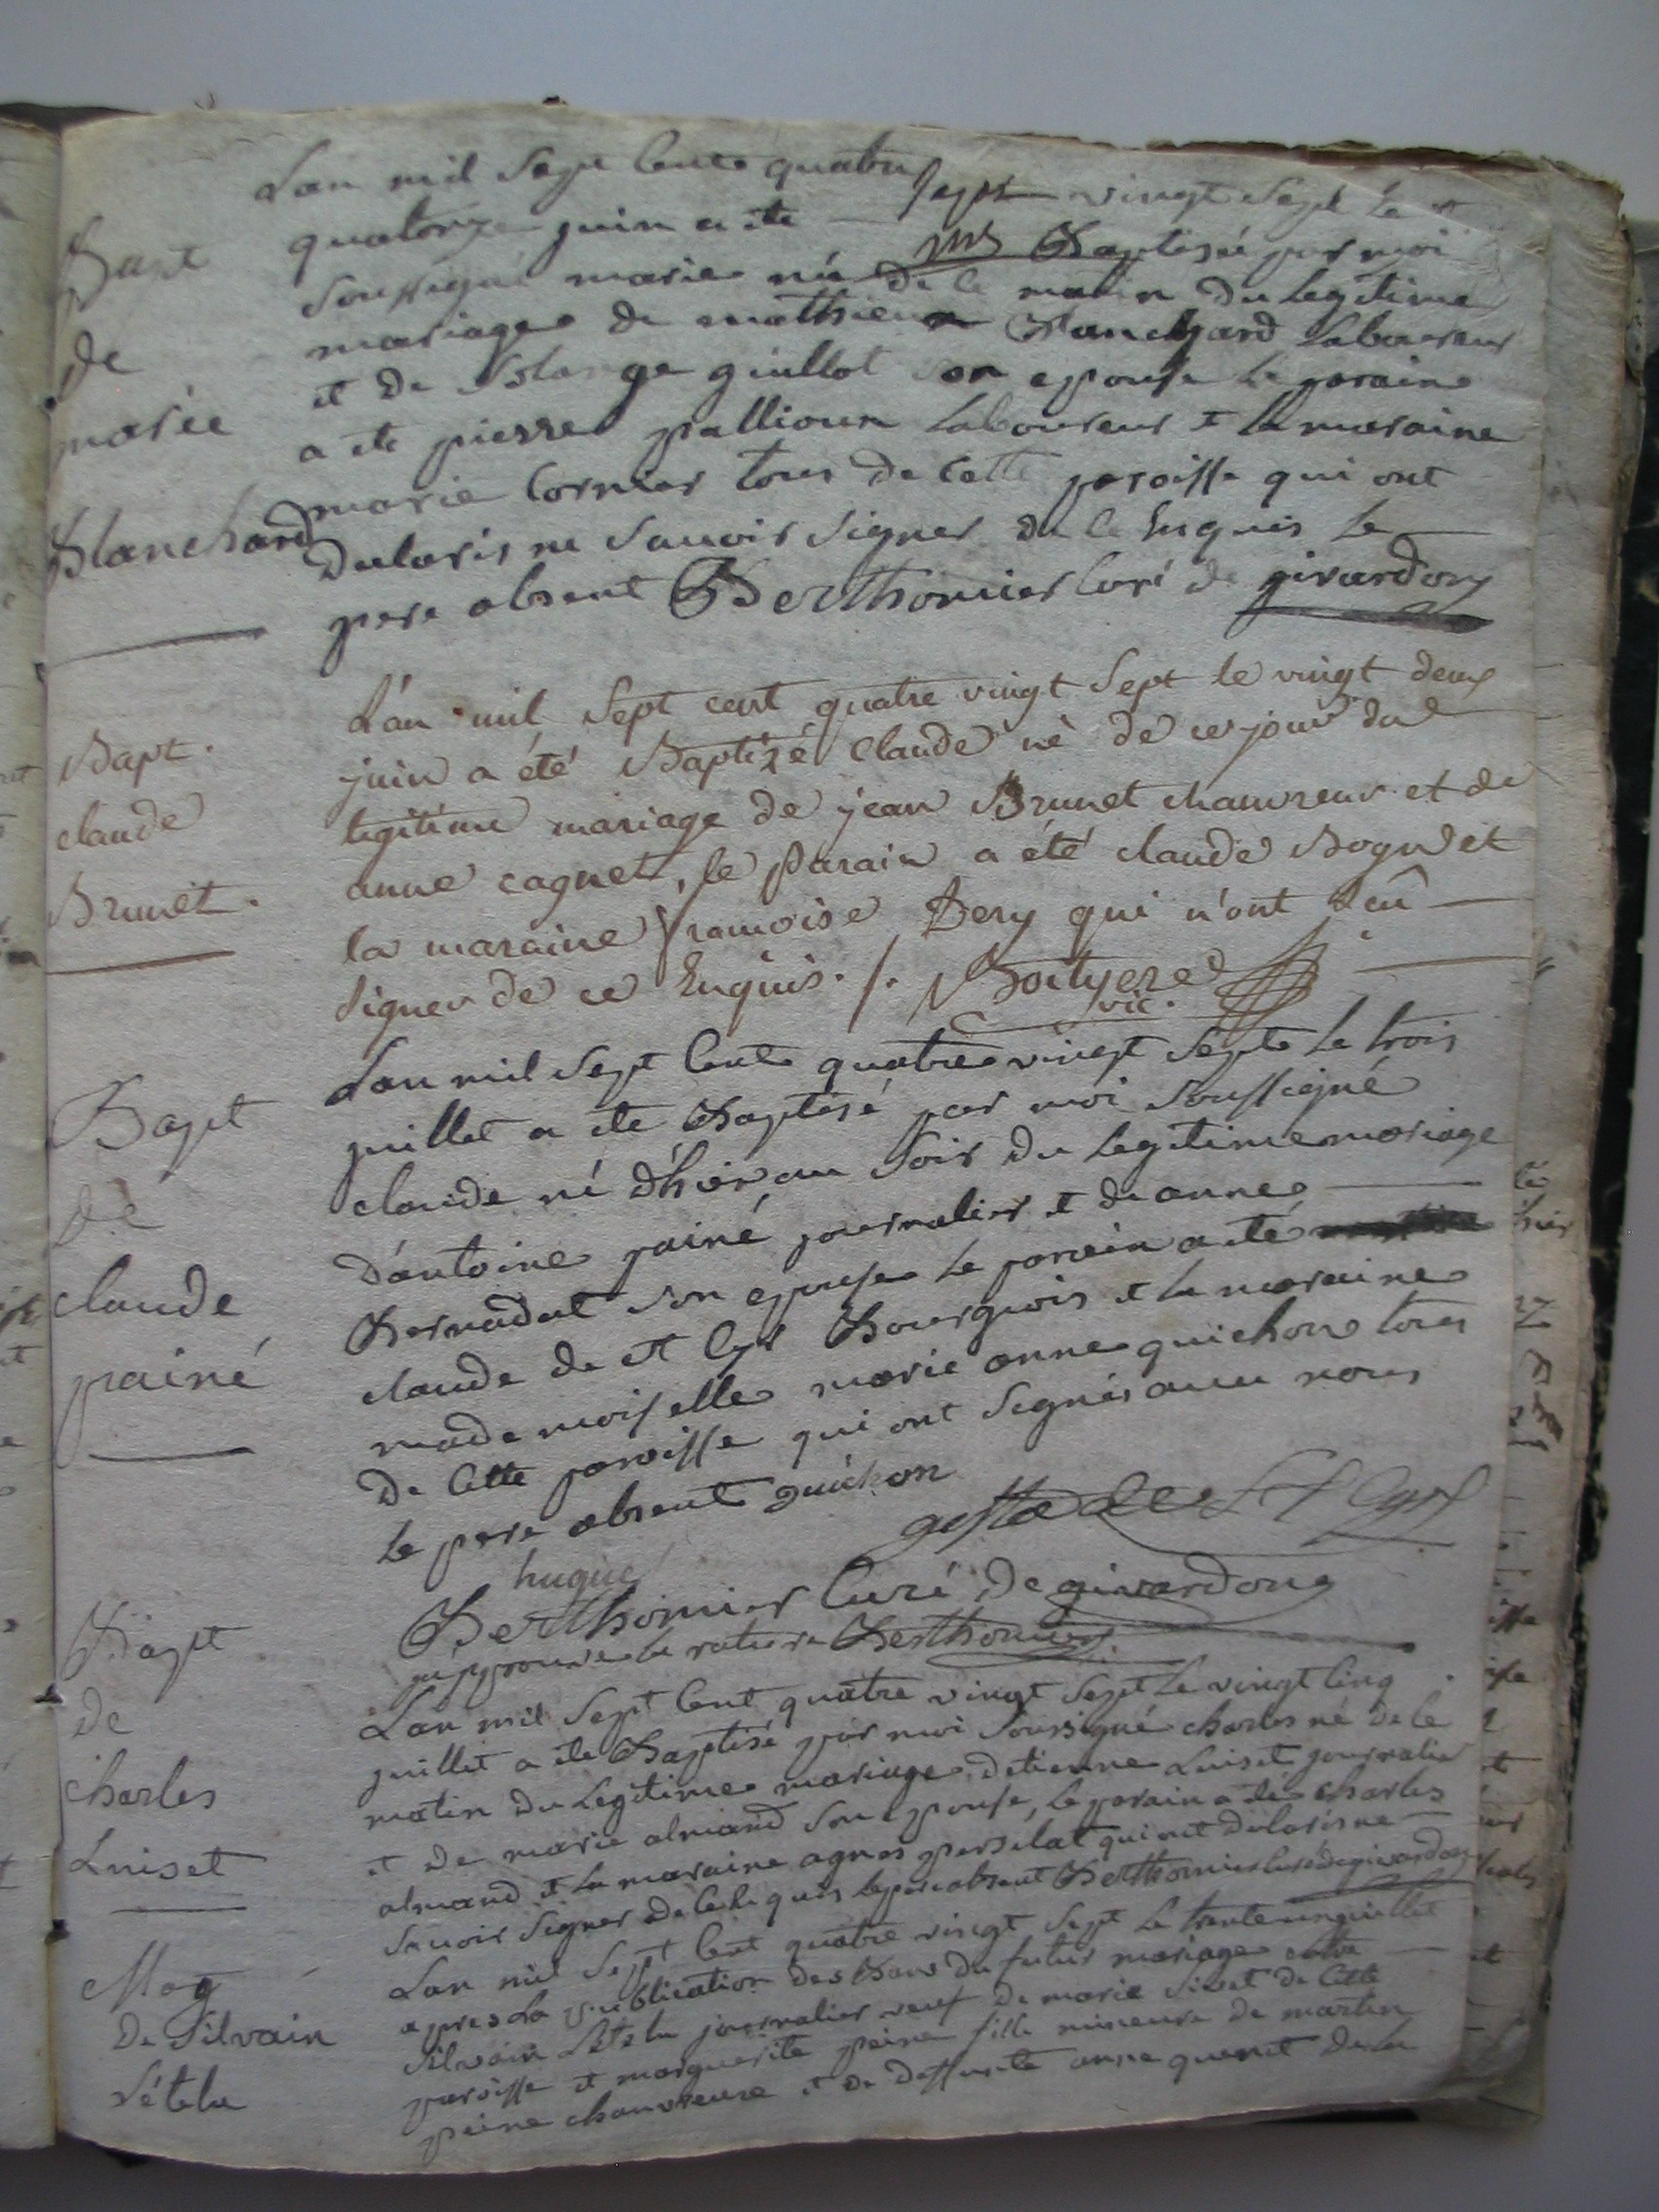 Bapt
de
marie
Blanchard
Lan mil Sept Cent quatre vingt Sept le
quatorze juin a ete Baptisée par moi
soussigné marie née de ce matin du legitime
mariage de mathieu Blanchard laboureur
et de Solange guillot son epouse le parain
a ete pierre pallioux laboureur et la maraine
marie Cornier tous de Cette paroisse qui ont
declarés ne Savoir Signer de ce Enquis le
pere absent Berthomier Curé de givardon
Bapt.
claude
Brunet.
L'an mil Sept cent quatre vingt Sept le vingt deux
juin a été Baptizé claude né de ce jour du
legitime mariage de jean Brunet chanvreur et de
anne cagnet, le Parain a été claude Bognd et
la maraine francoise Dery qui n'ont Scû
Signer de ce Enquis ./.
vic.
Bapt
de
claude
painé
Lan mil Sept Cent quatre vingt Sept le trois
juillet a ete Baptisé par moi Soussigné
claude né d'hier au Soir du legitime mariage
d'antoine painé journalier et de anne
Bernadat son epouse le parain a été
claude de st Cyr Bourgeois et la maraine
mademoiselle marie anne guichon tous
de Cette paroisse qui ont Signés avec nous
le pere absent guichon
huguet
Berthomier Curé de givardon
japprouve la rature Berthomier
Bapt
de
charles
Luiset
Lan mil Sept Cent quatre vingt Sept le vingt Cinq
juillet a ete Baptisé par moi Soussigné charles né de ce
matin du legitime mariage detienne Luiset journalier
et de marie almand Son epouse, le parain a été charles
almand et la maraine agnes perselat qui ont delarés ne
Savoir Signer de ce Enquis le pere absent Berthomier Curé de givardon
Mag
de Silvain
Létalu
Lan mil Sept Cent quatre vingt Sept le trente un juillet
apres la publication des Bans du futur mariage entre
Silvain journalier veuf de marie de Cette
paroisse et marguerite peine fille mineure de martin
peine chanvreur et de deffunte anne quenet de la